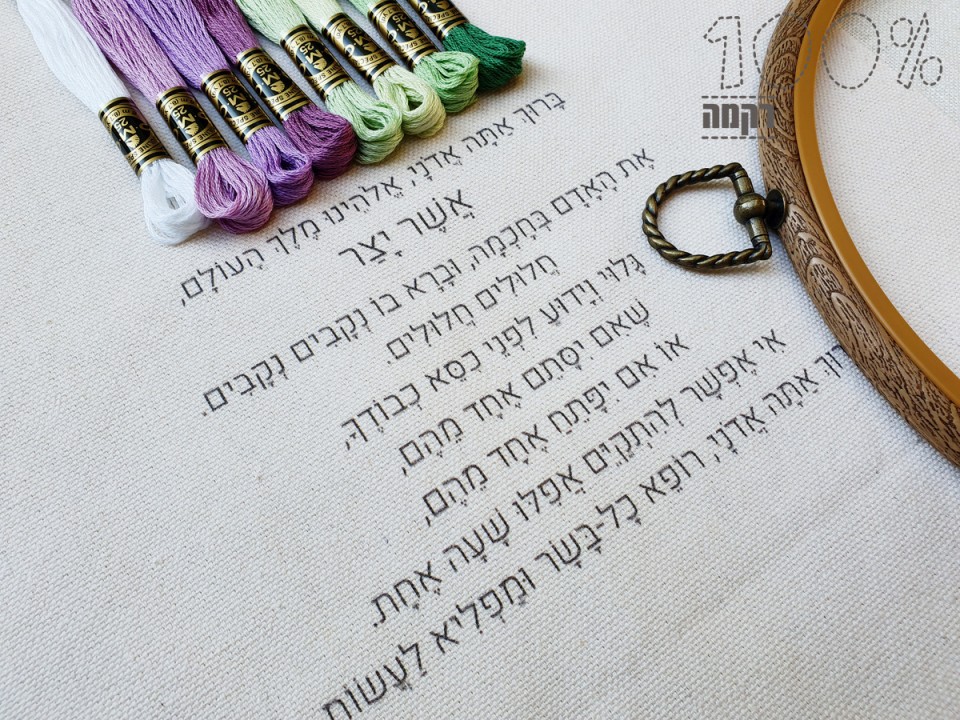 100%
רקמה
בָּרוּךְ אַתָּה אֲדֹנָי, אֱלֹהֵינוּ מֶלֶךְ הָעוֹלָם,
אֲשֶׁר יָצַר
אֶת הָאָדָם בְּחָכְמָה, וּבָרָא בוֹ נְקָבִים נְקָבִים.
חֲלוּלִים חֲלוּלִים.
גָּלוּי וְיָדוּעַ לִפְנֵי כִסֵּא כְבוֹדֶךָ,
שֶׁאִם יִסָּתֵם אֶחָד מֵהֶם,
אוֹ אִם יִפָּתֵחַ אֶחָד מֵהֶם,
אִי אֶפְשָׁר לְהִתְקַיֵּם אֲפִלּוּ שָׁעָה אֶחָת.
אַתָּה אֲדֹנָי, רוֹפֵא כָל-בָּשָׂר וּמַפְלִיא לַעֲשׂוֹת